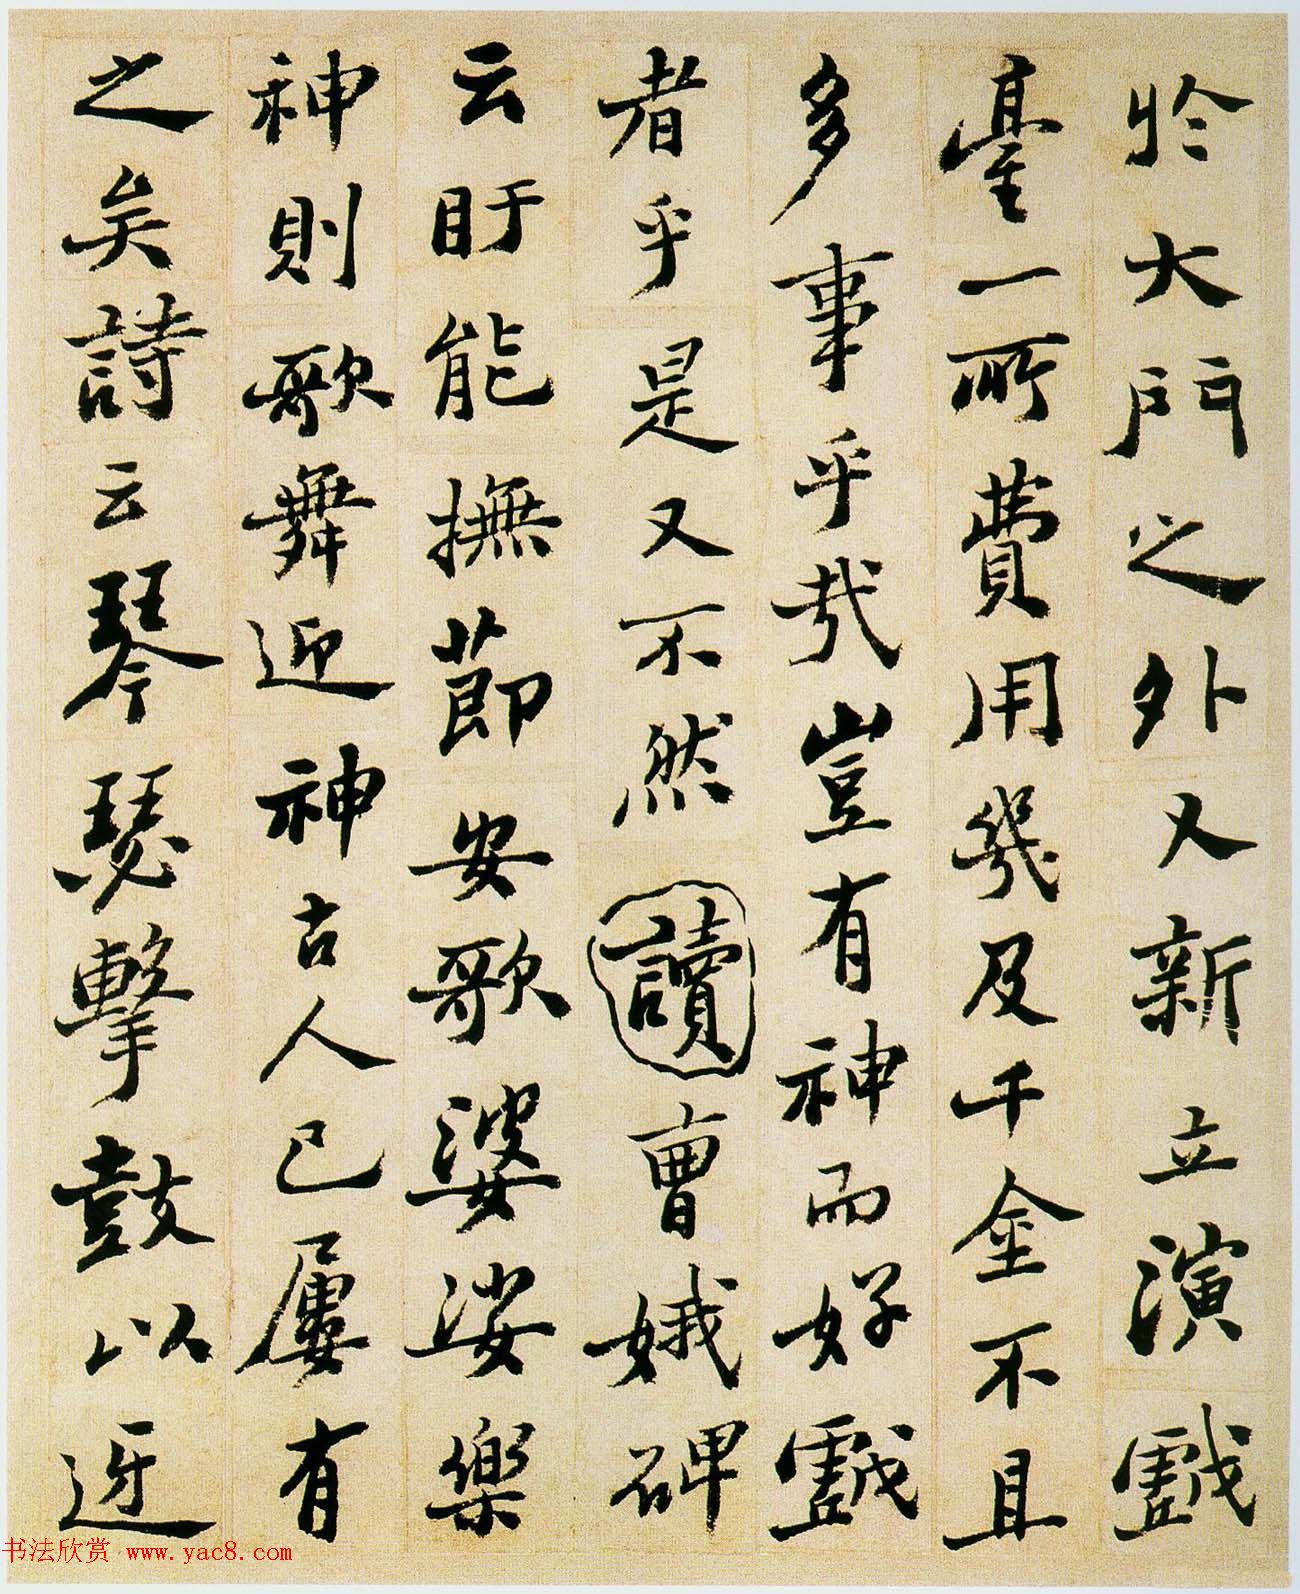 於大門之外又新立演戲
臺一所費用幾及千金不且
多事乎哉豈有神而好戲
者乎是又不然讀曹娥碑
云盱能撫節安歌婆娑樂
神則歌舞迎神古人已屢有
之矣詩云琴瑟擊鼓以迓
书法欣赏 www.yac8.com